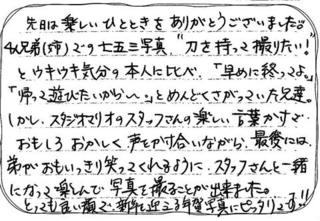 先日は楽しいひとときをありがとうございました。
4兄弟(姉)での七五三写真、"刀を持って撮りたい!"
とウキウキ気分の本人に比べ、「早めに終ってよ。」
「帰って遊びたいから〜。」とめんどくさがっていた兄達。
しかし、スタジオマリオのスタッフさんの楽しい言葉かけで
おもしろおかしく声をかけ合いながら、最後には
弟がおもいっきり笑ってくれるように、スタッフさんと一緒
になって楽しんで写真を撮ることが出来ました。
とっても良い顔で、新年迎える年賀写真にピッタリです!!